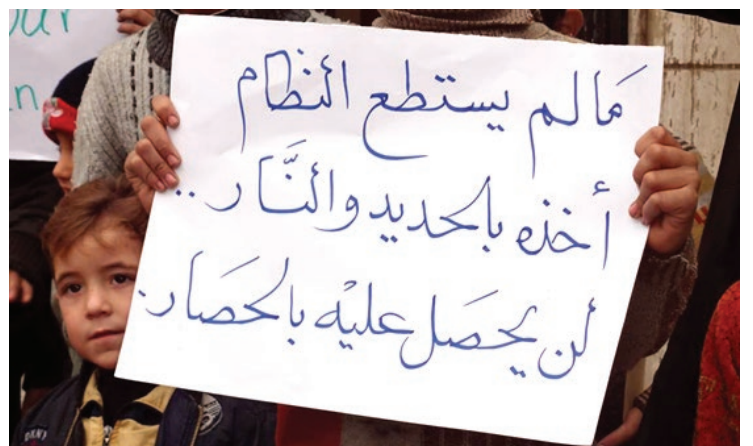 our
n
مَا لم يستطع النظام
أخذه بالحديد والنَّار ..
لن يحصَل عليْه بالحصَار.
DKNY